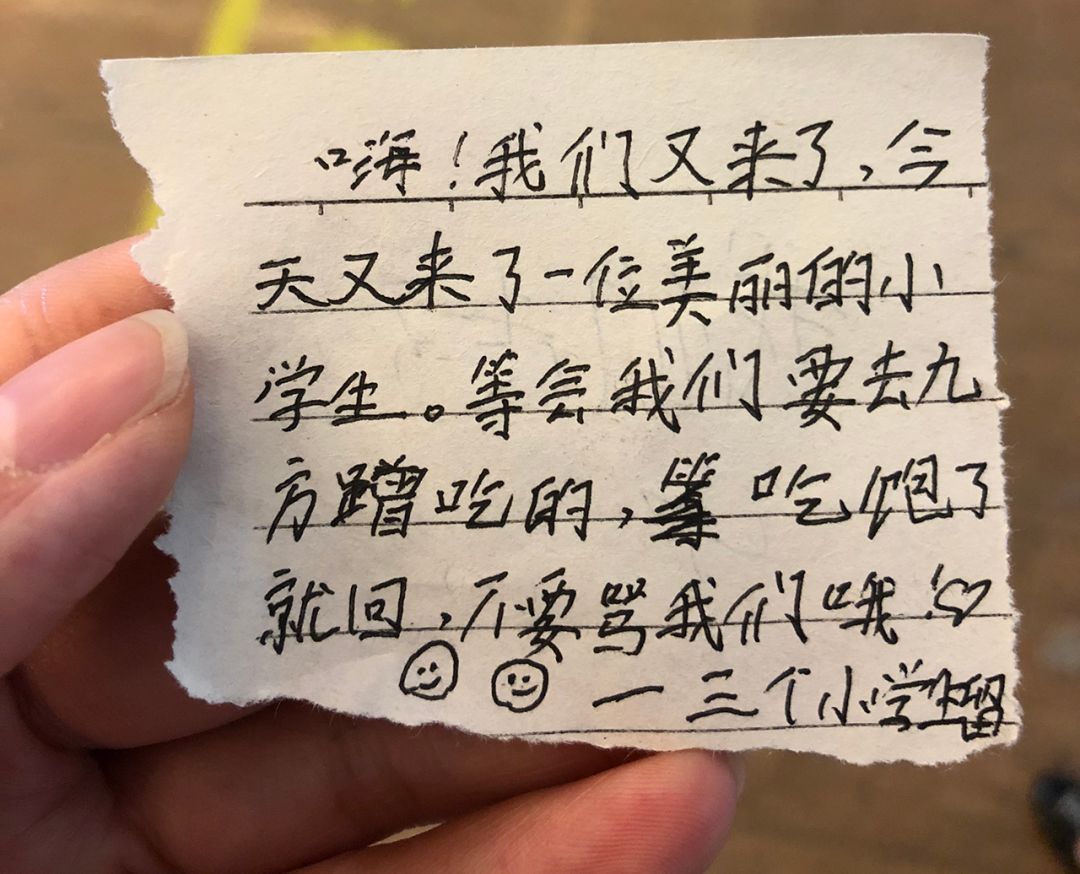 嗨！我们又来了，今
天又来了一位美丽的小
学生。等会我们要去九
方蹭吃的，等吃饱了
就回，不要骂我们哦！♡
一三个小学生留